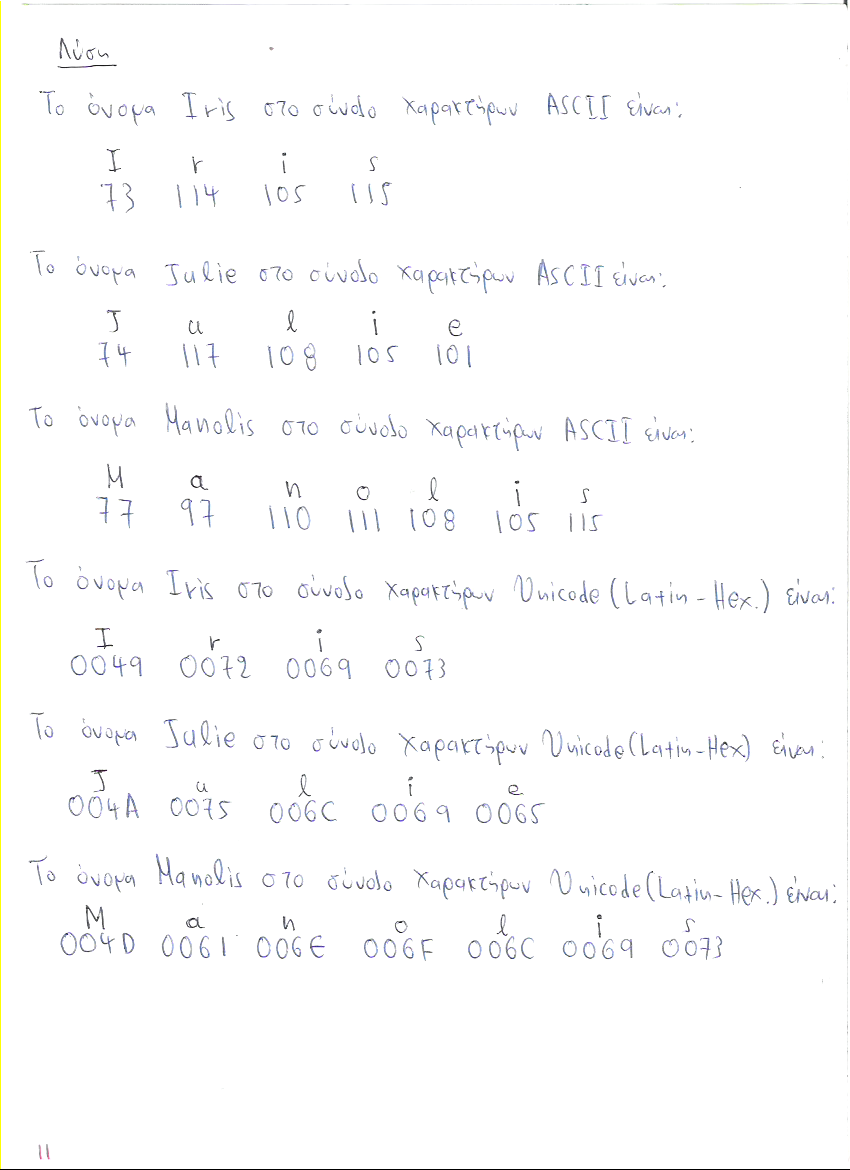 Λύση
Το όνομα Iris στο σύνολο χαρακτήρων ASCII είναι:
I r i s
73 114 105 115
Το όνομα Julie στο σύνολο χαρακτήρων ASCII είναι:
J u l i e
74 117 108 105 101
Το όνομα Manolis στο σύνολο χαρακτήρων ASCII είναι:
M a n o l i s
77 97 110 111 108 105 115
Το όνομα Iris στο σύνολο χαρακτήρων Unicode (Latin - Hex.) είναι:
I r i s
0049 0072 0069 0073
Το όνομα Julie στο σύνολο χαρακτήρων Unicode (Latin-Hex) είναι:
J u l i e
004A 0075 006C 0069 0065
Το όνομα Manolis στο σύνολο χαρακτήρων Unicode (Latin-Hex.) είναι:
M a n o l i s
004D 0061 006E 006F 006C 0069 0073
11